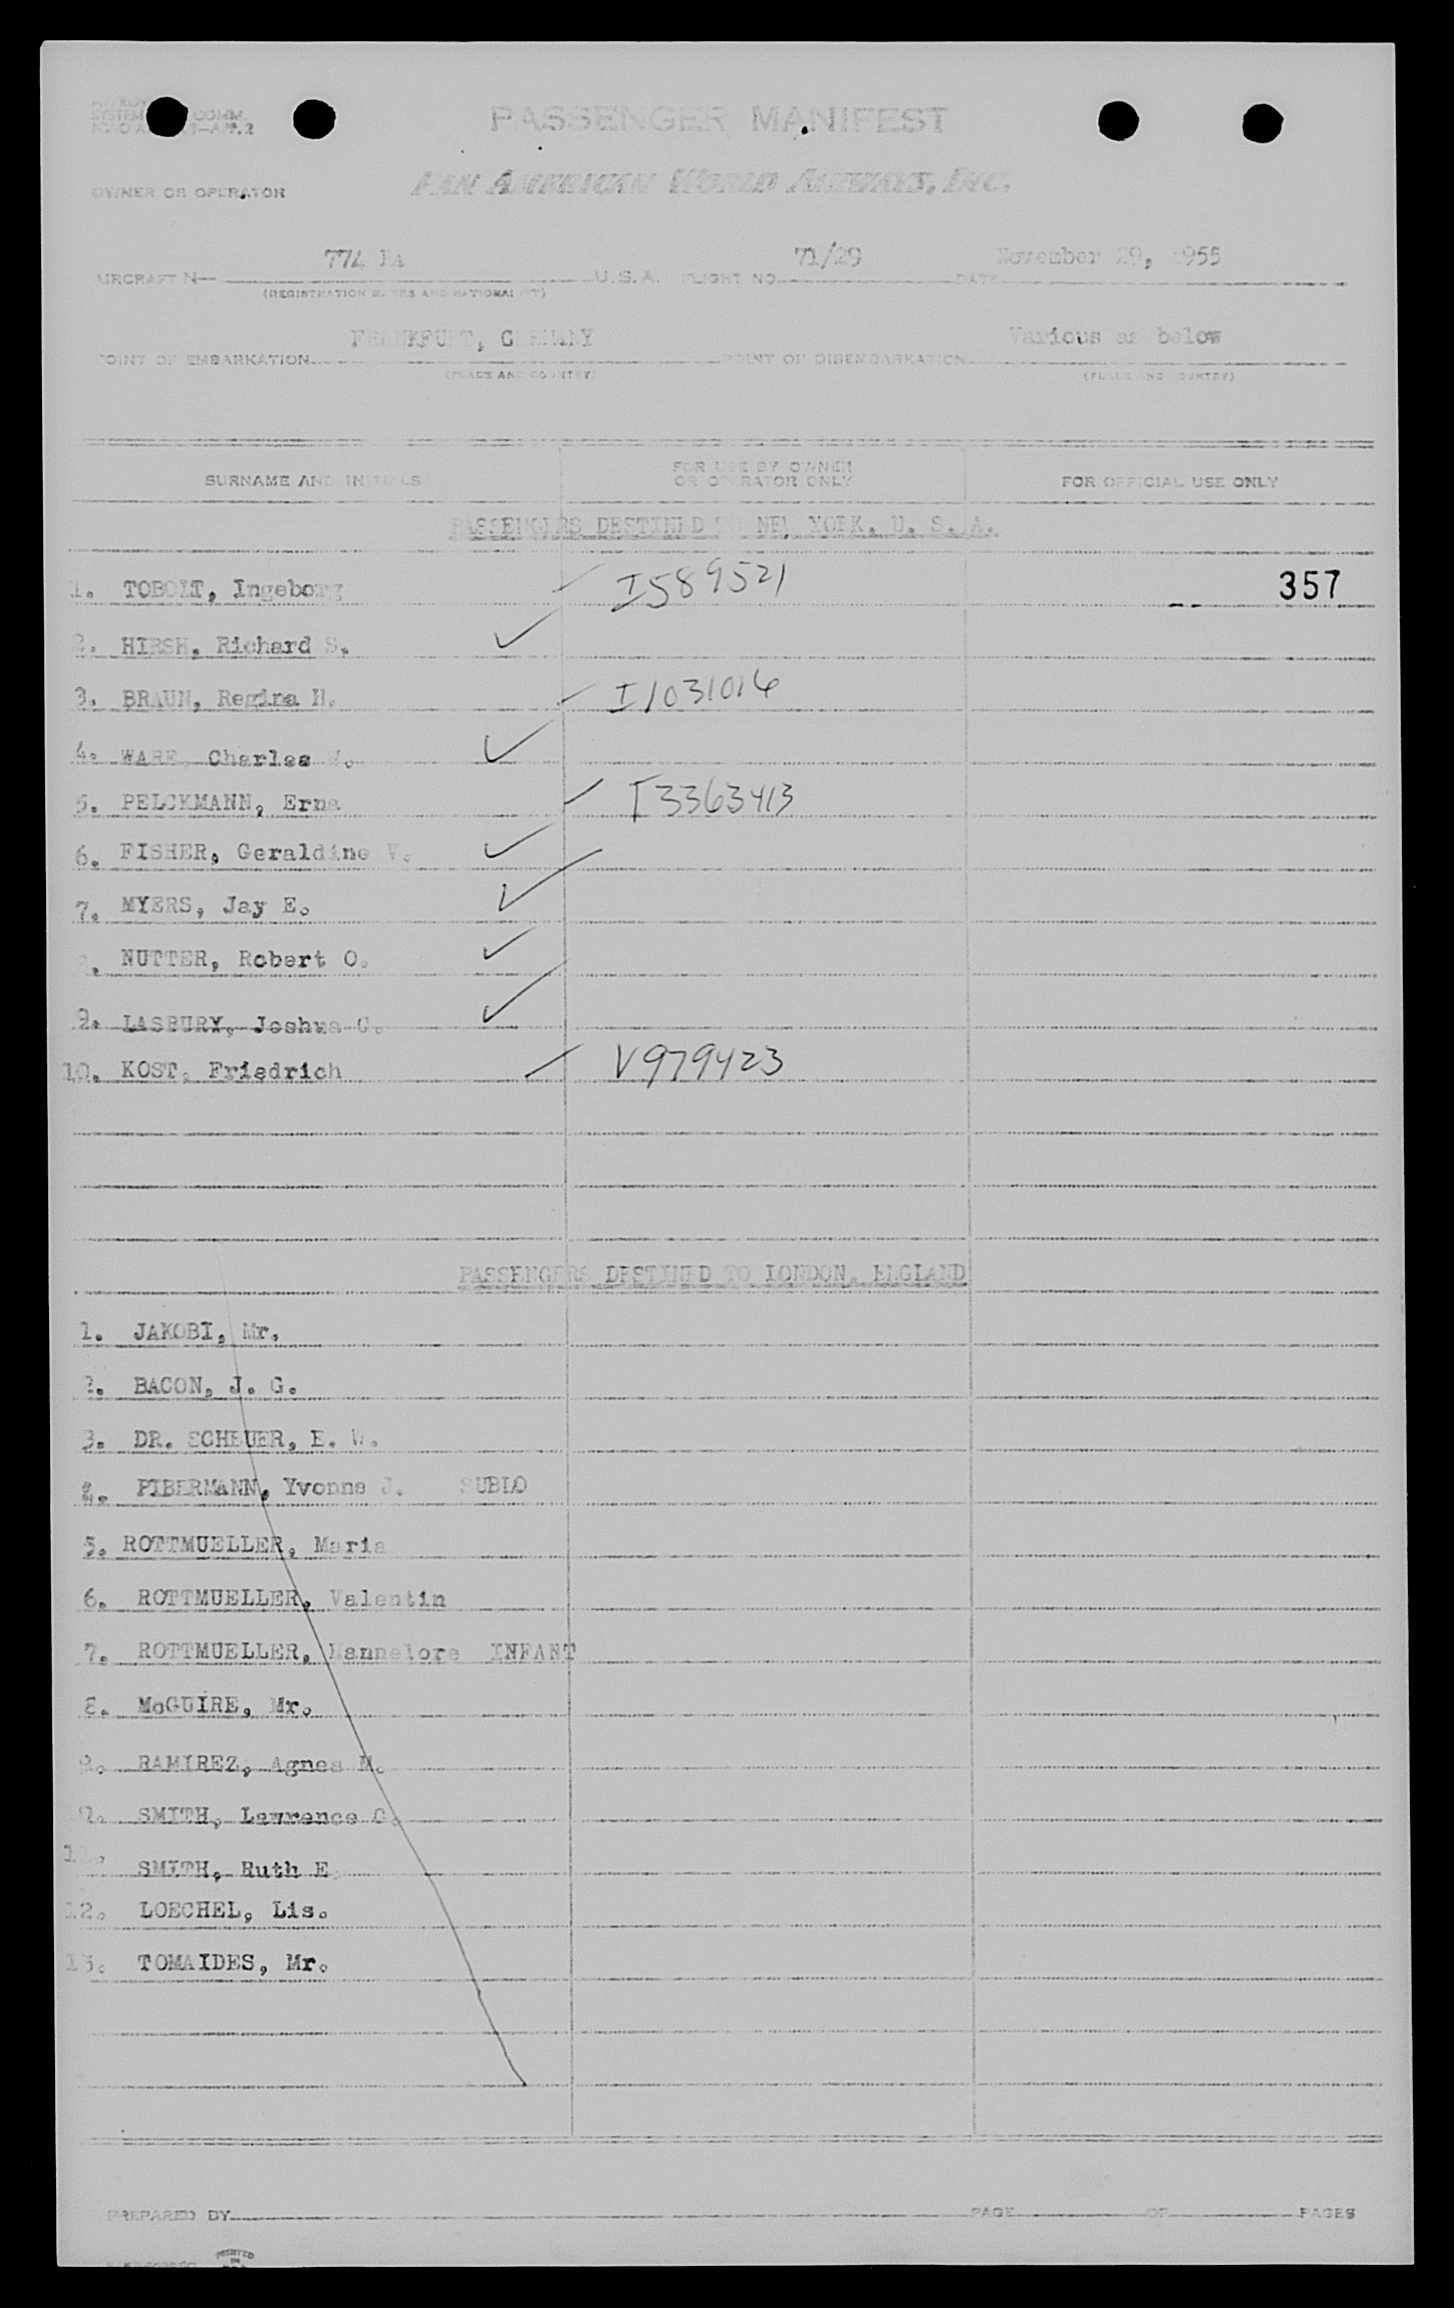 SYSTEM COMM.
PASSENGER MANIFEST
OWNER OR OPERATOR
PAN AMERICAN WORLD AIRWAYS, INC.
AIRCRAFT N— 774 PA U.S.A. FLIGHT NO. 71/29 DATE November 29, 1955
(REGISTRATION MARKS AND NATIONALITY)
POINT OF EMBARKATION FRANKFURT, GERMANY POINT OF DISEMBARKATION Various as below
(PLACE AND COUNTRY) (PLACE AND COUNTRY)
SURNAME AND INITIALS FOR USE BY OWNER OR OPERATOR ONLY FOR OFFICIAL USE ONLY
PASSENGERS DESTINED TO NEW YORK. U. S. A.
1. TOBOLT, Ingeborg I589521 357
2. HIRSH, Richard S. ✓
3. BRAUN, Regina H. I1031016
4. WARE, Charles ✓
5. PELCKMANN, Erna I3363413
6. FISHER, Geraldine V. ✓
7. MYERS, Jay E. ✓
NUTTER, Robert O. ✓
9. LASBURY, Joshua C. ✓
10. KOST, Friedrich V979423
PASSENGERS DESTINED TO LONDON, ENGLAND
1. JAKOBI, Mr.
2. BACON, J. G.
3. DR. SCHEUER, E. W.
4. PIBERMANN, Yvonne J. SUBLO
5. ROTTMUELLER, Maria
6. ROTTMUELLER, Valentin
7. ROTTMUELLER, Hannelore INFANT
8. McGUIRE, Mr.
9. RAMIREZ, Agnes M.
SMITH, Lawrence C.
SMITH, Ruth E.
12. LOECHEL, Lis.
13. TOMAIDES, Mr.
PREPARED BY PAGE OF PAGES
PRINTED